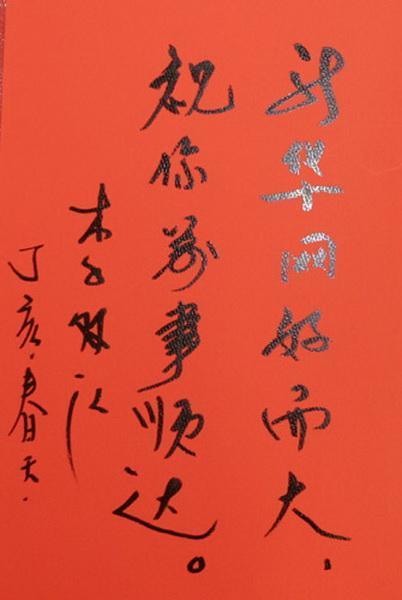 新华网好而大.
祝你万事顺达。
李双江
丁亥·春日天.